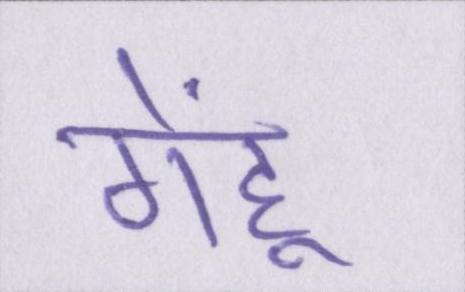 गेंहू